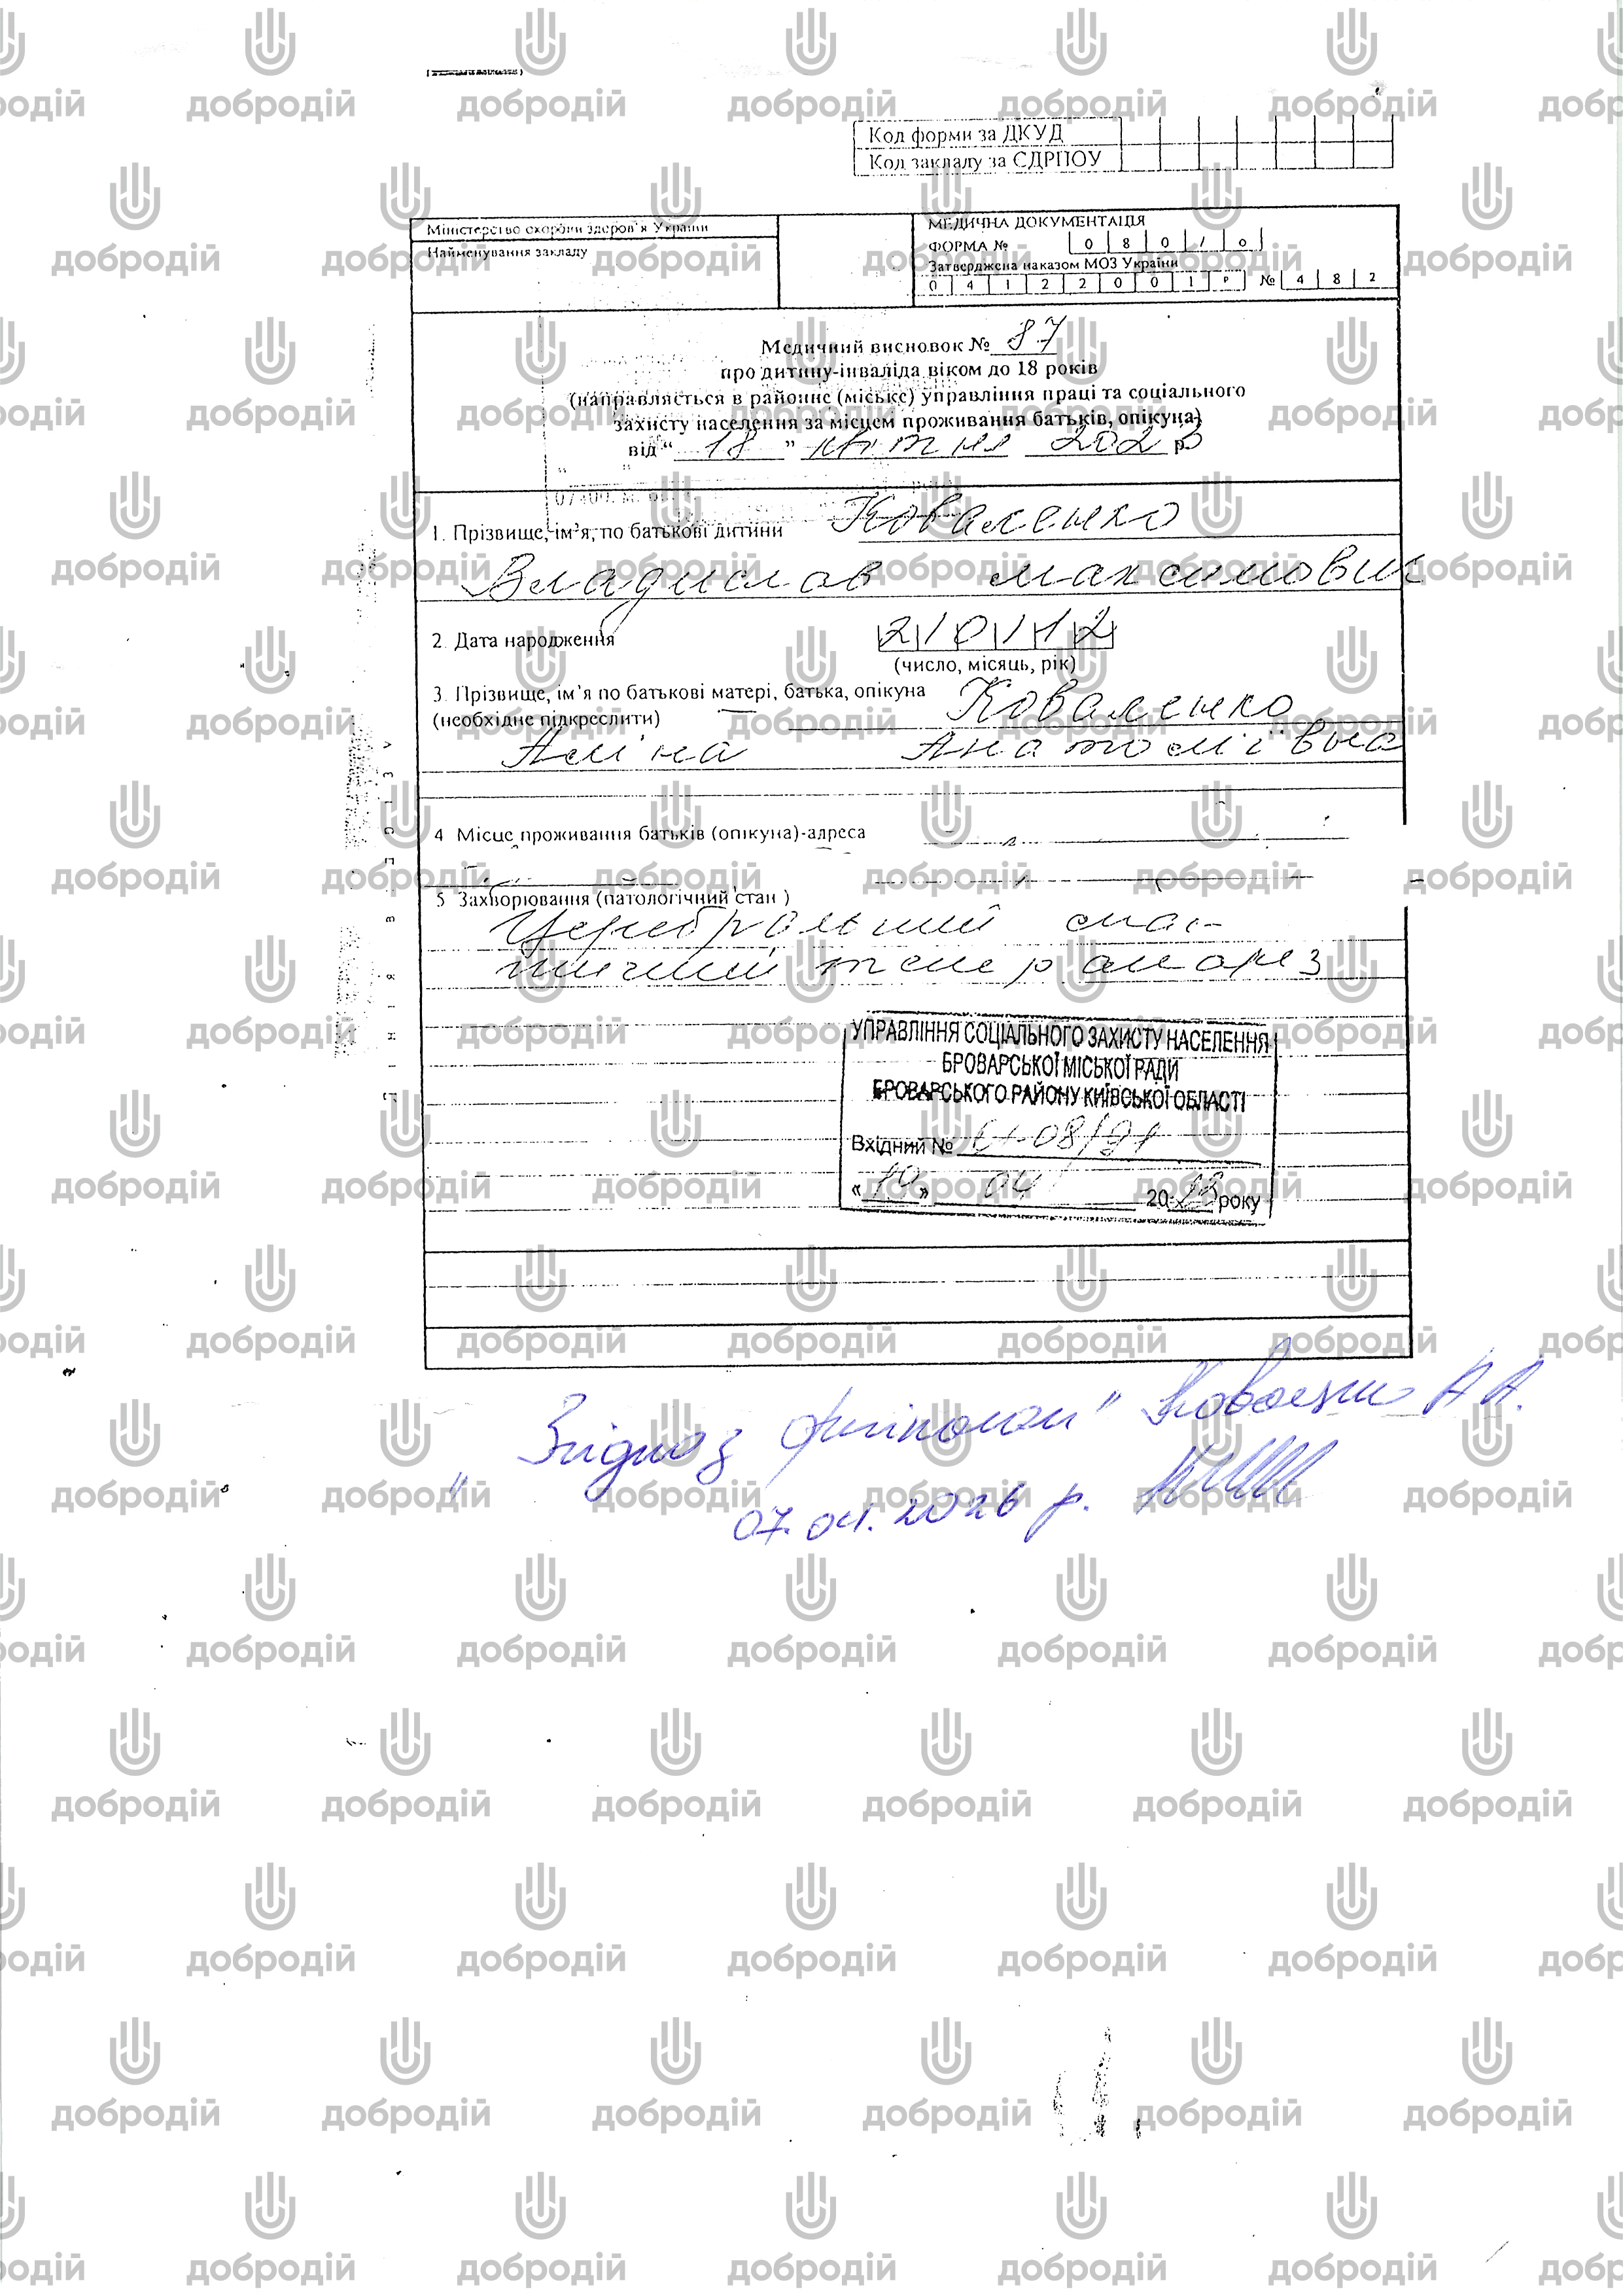 Код форми за ДКУД
Код закладу за ЄДРПОУ
Міністерство охорони здоров'я України
Найменування закладу
МЕДИЧНА ДОКУМЕНТАЦІЯ
ФОРМА № 0 8 0 / о
Затверджена наказом МОЗ України
0 4 1 2 2 0 0 1 р № 4 8 2
Медичний висновок № 87
про дитину-інваліда віком до 18 років
(направляється в районне (міське) управління праці та соціального
захисту населення за місцем проживання батьків, опікуна)
від " 18 " квітня 2023 р
1. Прізвище, ім'я, по батькові дитини Коваленко
Владислав Максимович
2. Дата народження 2 1 0 1 1 2
(число, місяць, рік)
3. Прізвище, ім'я по батькові матері, батька, опікуна
(необхідне підкреслити) Коваленко
Аліна Анатоліївна
4 Місце проживання батьків (опікуна)-адреса
5 Захворювання (патологічний стан )
Церебральний спас-
тичний тетрапарез
УПРАВЛІННЯ СОЦІАЛЬНОГО ЗАХИСТУ НАСЕЛЕННЯ
БРОВАРСЬКОЇ МІСЬКОЇ РАДИ
БРОВАРСЬКОГО РАЙОНУ КИЇВСЬКОЇ ОБЛАСТІ
Вхідний №
« » 04 20 23 року
"Згідно з оригіналом" Коваленко А А.
07.04.2026 р.
добродій